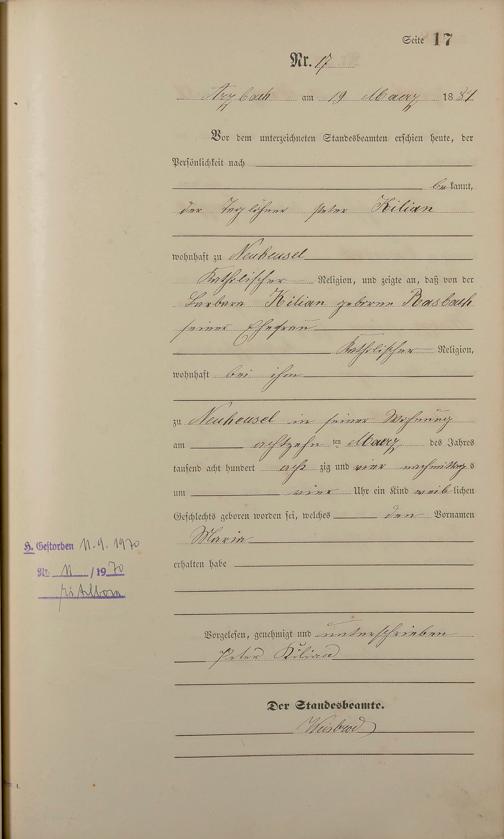 Seite 17
Nr. 17
Arzbach am 19 Maerz 1884
Vor dem unterzeichneten Standesbeamten erschien heute, der
Persönlichkeit nach
bekannt,
der Taglöhner Peter Kilian
wohnhaft zu Neuheusel
Katholischer Religion, und zeigte an, daß von der
Barbara Kilian geborne Rasbach
seiner Ehefrau
Katholischer Religion,
wohnhaft bei ihm
zu Neuheusel in seiner Wohnung
am achtzehn ten Maerz des Jahres
tausend acht hundert acht zig und vier nachmittags
um vier Uhr ein Kind weiblichen
Geschlechts geboren worden sei, welches den Vornamen
Maria
erhalten habe
H. Gestorben 11.9.1970
Nr. 11 /1970
Vorgelesen, genehmigt und unterschrieben
Peter Kilian
Der Standesbeamte.